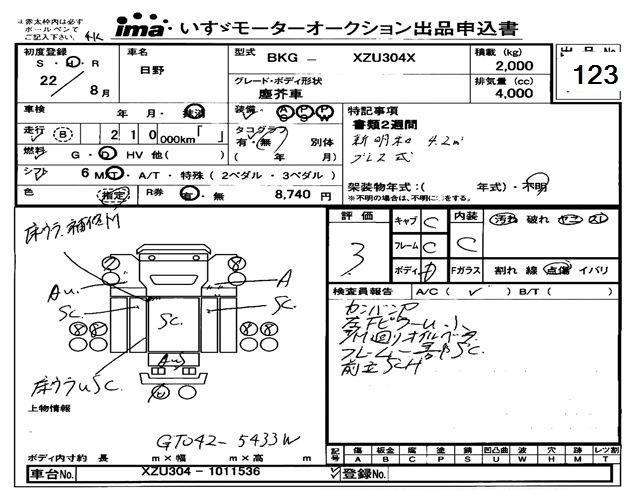 ※赤太枠内は必ず
ボールペンで
ご記入下さい。
ima いすゞモーターオークション出品申込書
初度登録 S・H・R 22 8月
車名 日野
型式 BKG - XZU304X
積載 (kg) 2,000
出品No. 123
グレード・ボディ形状 塵芥車
排気量 (cc) 4,000
車検 年 月・抹消
装備 AC PS PW
特記事項
書類2週間
新明和 4.2㎥
プレス式
走行 B 210 000km「 」
タコグラフ 有・無 別体 ( 年 月)
燃料 G・D HV 他( )
シフト 6 MT・A/T・特殊(2ペダル・3ペダル)
架装物年式:( 年式)・不明
※不明の場合は、不明に○をする。
色 指定 R券 有・無 8,740 円
評価 3
キャブ C
フレーム C
ボディ D
内装 C
汚れ 破れ ヤニ スレ
Fガラス 割れ 線 点傷 イバリ
床ウラ補修M
AU
A
SC
SC.
SC.
AUS
床ウラUSC
検査員報告 A/C( ✓ ) B/T( )
カンバンP
フレーム一部SC.
前立SCH
上物情報
GT042-5433W
ボディ内寸約 長 m×幅 m×高 m
記号 傷A 板金B 腐C 塗P 錆S 凹凸曲U 波W 穴H 跡M レツ割T
車台No. XZU304-1011536
登録No.